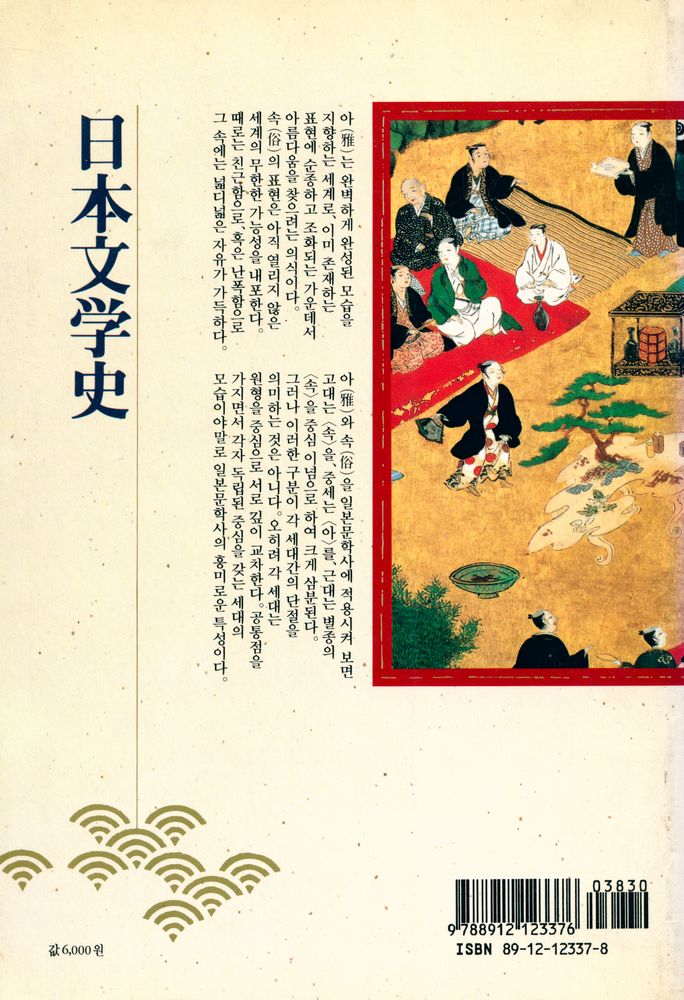 日本文学史
아(雅)는 완벽하게 완성된 모습을
지향하는 세계로, 이미 존재하는
표현에 순종하고 조화되는 가운데서
아름다움을 찾으려는 의식이다.
속(俗)의 표현은 아직 열리지 않은
세계의 무한한 가능성을 내포한다.
때로는 친근함으로, 혹은 난폭함으로
그 속에는 넓디넓은 자유가 가득하다.
아(雅)와 속(俗)을 일본문학사에 적용시켜 보면
고대는 〈속〉을, 중세는 〈아〉를, 근대는 별종의
〈속〉을 중심 이념으로 하여 크게 삼분된다.
그러나 이러한 구분이 각 세대간의 단절을
의미하는 것은 아니다. 오히려 각 세대는
원형을 중심으로 서로 깊이 교차한다. 공통점을
가지면서 각자 독립된 중심을 갖는 세대의
모습이야말로 일본문학사의 흥미로운 특성이다.
값 6,000원
03830
9 788912 123376
ISBN 89-12-12337-8